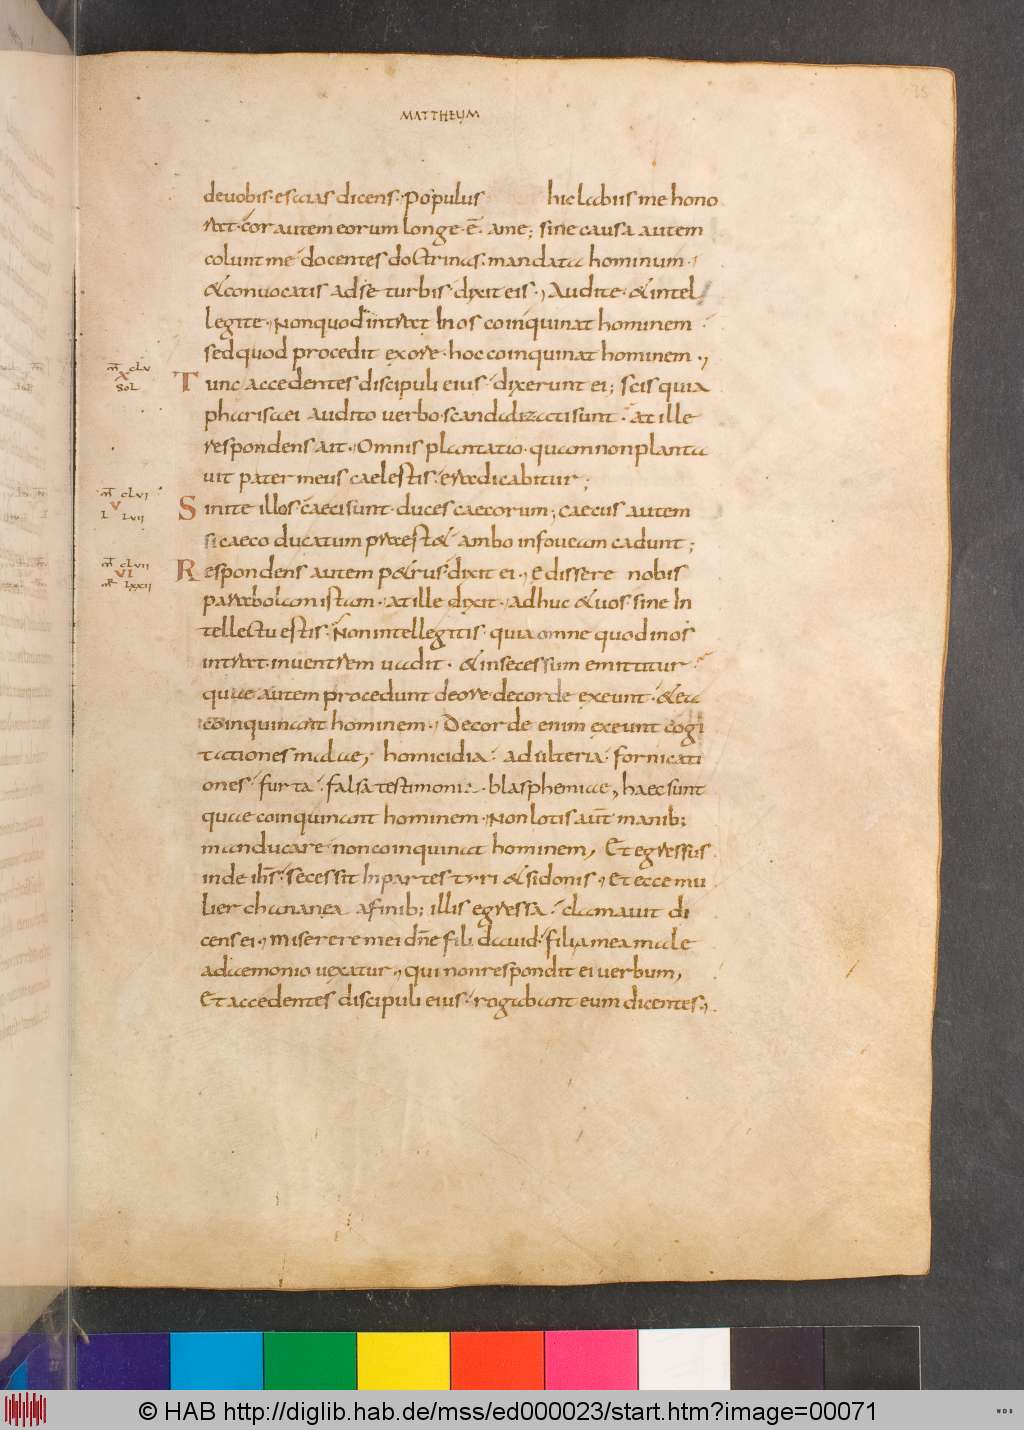 35
MATTHEUM
de uobis esaias dicens. Populus hic labiis me hono
rat. cor autem eorum longe ē. a me; sine causa autem
colunt me docentes doctrinas. mandata hominum.
& conuocatis ad se turbis dixit eis. Audite. & intel
legite. Non quod intrat In os coinquinat hominem
sed quod procedit ex ore. hoc coinquinat hominem.,
m̄ clv
x
Sol
Tunc accedentes discipuli eius dixerunt ei; scis quia
pharisaei audito uerbo scandalizati sunt. at ille
respondens ait. Omnis plantatio. quam non planta
uit pater meus caelestis. eradicabitur;
m̄ clvi
v
L lvii
Sinite illos. caeci sunt. duces caecorum; caecus autem
si caeco ducatum praest& ambo in foueam cadunt;
m̄ clvii
vi
mR lxxii
Respondens autem p&rus. dixit ei., Edissere nobis
parabolam istam. at ille dixit. adhuc & uos. sine In
tellectu estis. Non intellegitis. quia omne quod in os
intrat. in uentrem uadit. & in secessum emittitur
quae autem procedunt de ore de corde exeunt. & ea
coinquinant hominem. De corde enim exeunt cogi
tationes malae, homicidia. adulteria. fornicati
ones. furta. falsa testimonia. blasphemiae, haec sunt
quae coinquinant hominem. Non lotis aut̄ manib;
manducare non coinquinat hominem, Et egressus
inde ihs̄. secessit In partes tyri & sidonis., Et ecce mu
lier chananea a finib; illis egressa. clamauit di
cens ei., miserere mei dn̄e fili dauid. filia mea male
a daemonio uexatur., qui non respondit ei uerbum,
Et accedentes discipuli eius. rogabant eum dicentes.,
© HAB http://diglib.hab.de/mss/ed000023/start.htm?image=00071